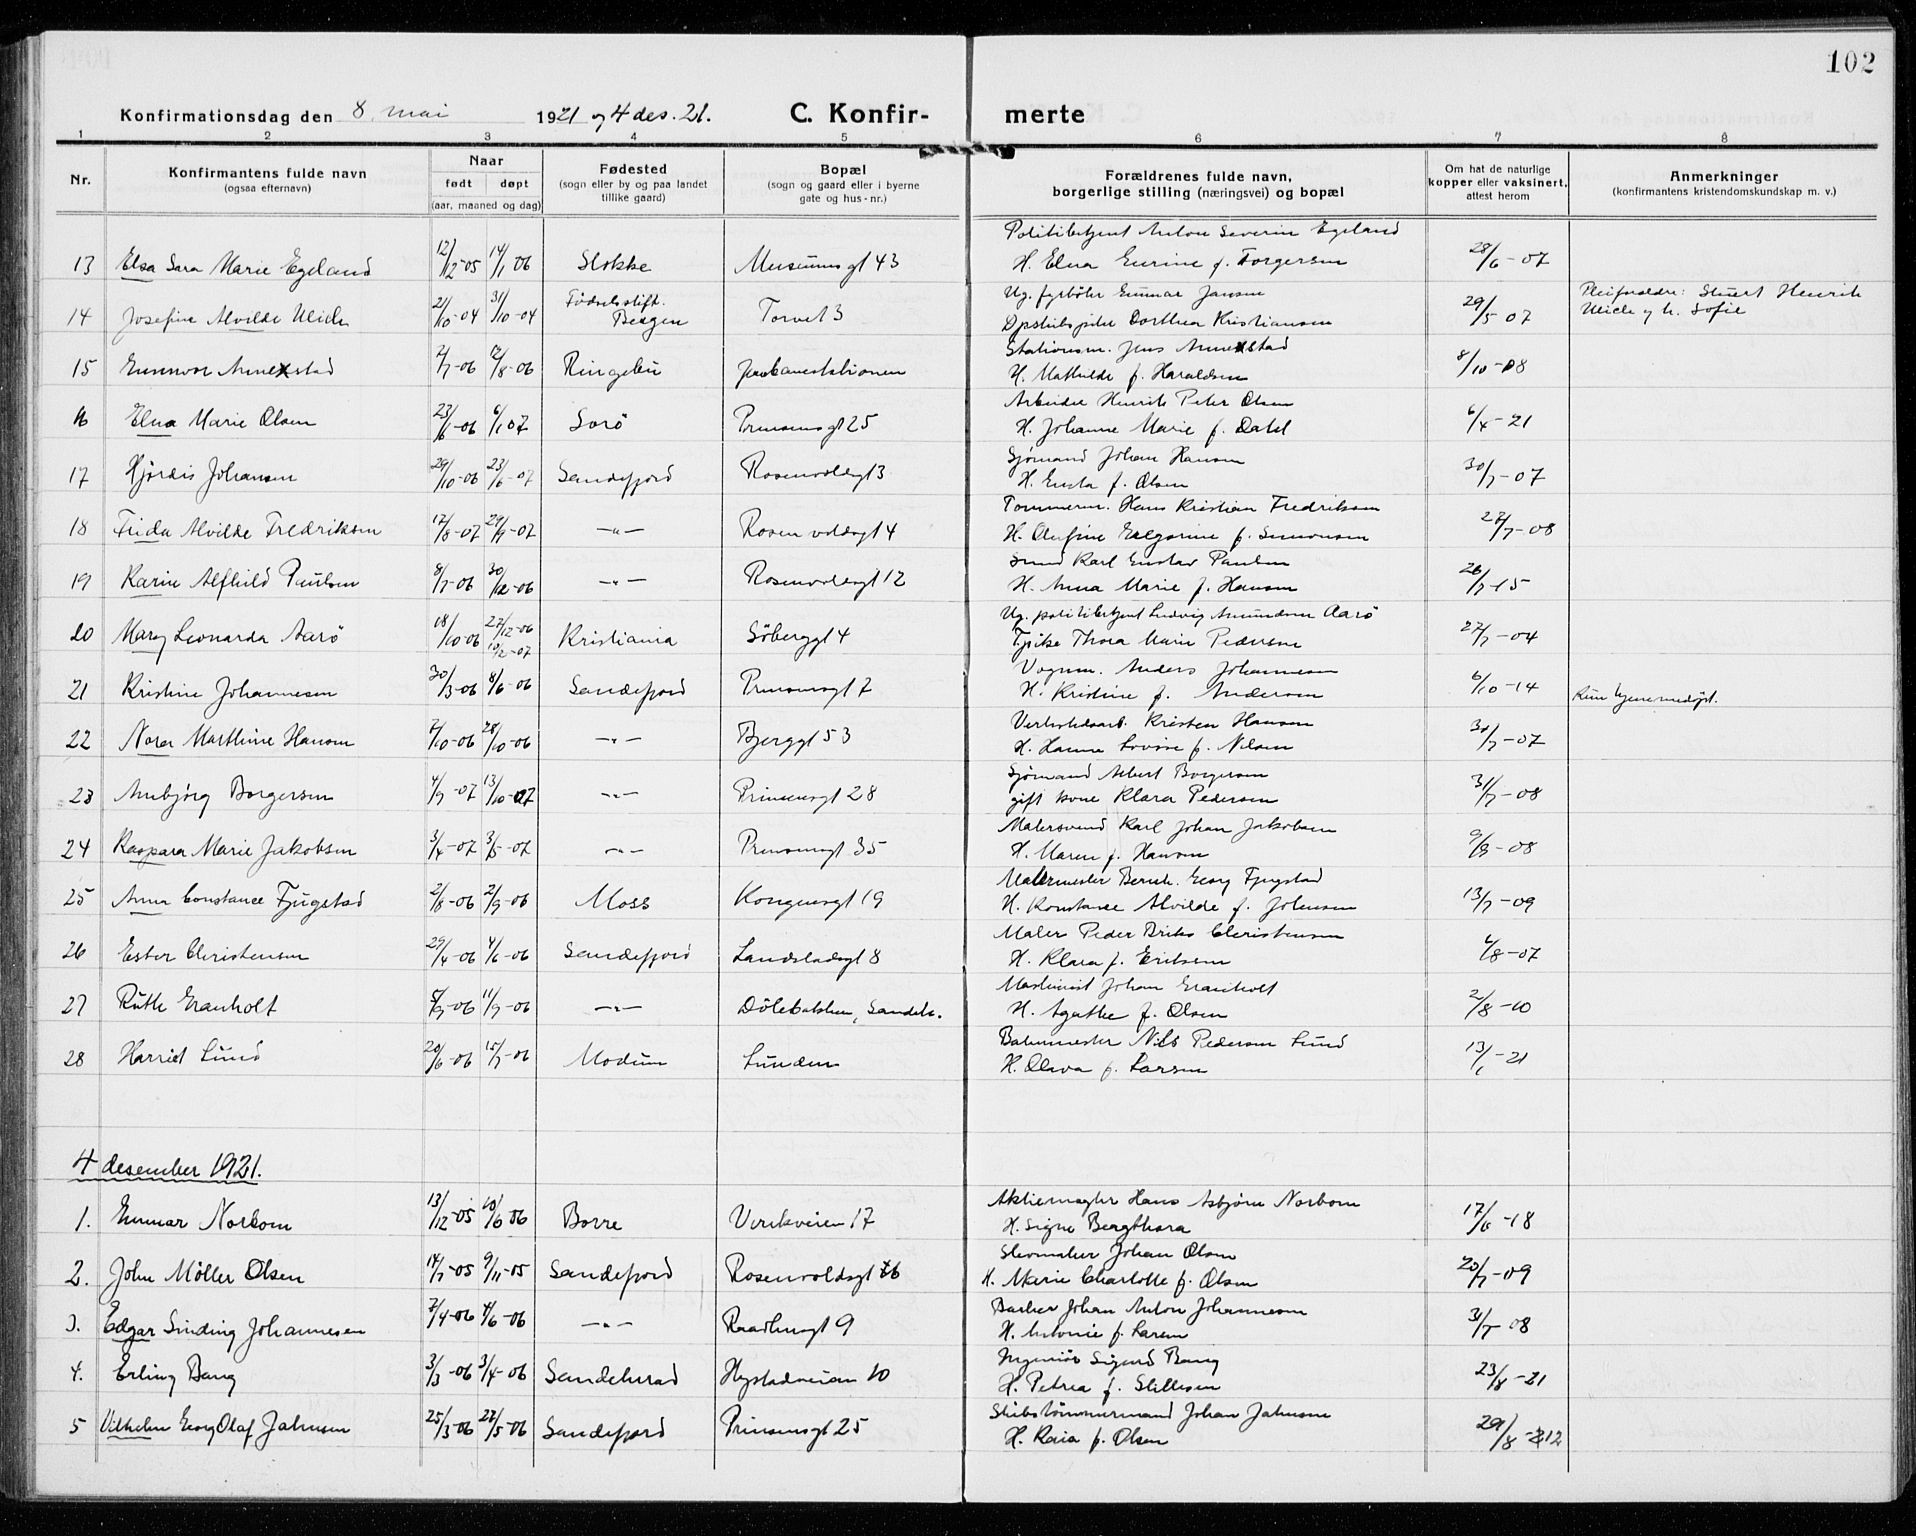 102
Konfirmationsdag den 8. mai 1921 og 4 des. 21. C. Konfir- merte
1 2 3 4 5 6 7 8
Nr. Konfirmantens fulde navn (ogsaa efternavn) Naar født døpt (aar, maaned og dag) Fødested (sogn eller by og paa landet tillike gaard) Bopæl (sogn og gaard eller i byerne gate og hus-nr.) Forældrenes fulde navn, borgerlige stilling (næringsvei) og bopæl Om hat de naturlige kopper eller vaksinert, attest herom Anmerkninger (konfirmantens kristendomskundskap m. v.)
Politibetjent Anton Severin Egeland
13 Elsa Sara Marie Egeland 12/12-05 14/1 06 Stokke Museumsgt 43 H. Elna Eurine f. Torgersen 28/6-07
Ug. fyrbøter Gunnar Jansen Pleiforældre: Stuert Henrik
14 Josefine Alvilde Ulich 21/10-04 31/10-04 Fødselsstift. Bergen Torvet 3 Dorthea Kristiansen 29/5 07 Ulich og h. Sofie
Stationsm. Jens Annexstad
15 Gunnvor Annexstad 2/7-06 12/8-06 Ringebu Jernbanestationen H. Mathilde f. Haraldsen 8/10-08
Arbeider Henrik Peter Olsen
16 Elna Marie Olsen 23/6-06 6/1 07 Sorö Prinsensgt 25 H. Johanne Marie f. Dahl 6/4-21
Sjømand Johan Hansen
17 Hjørdis Johansen 29/10-06 23/6-07 Sandefjord Rosenvoldsgt 3 H. f. Olsen 30/7-07
Tømmerm. Hans Kristian Fredriksen
18 Frida Alvilde Fredriksen 17/8-07 29/9-07 —"— Rosenvoldsgt 4 H. Olufine f. Simonsen 27/7-08
Smed Karl Gustav Paulsen
19 Karin Alfhild Paulsen 8/7-06 30/12-06 —"— Rosenvoldsgt 12 H. Anna Marie f. Hansen 26/7-15
Ug. politibetjent Ludvig Amundsen Aarö
20 Mary Leonarda Aarö 18/10-06 27/12-06 10/2-07 Kristiania Söberggt 4 Pike Thora Marie Pedersen 27/7-04
Vognm. Anders Johannesen
21 Kristine Johannesen 30/3-06 8/6-06 Sandefjord Prinsensgt 7 H. Kristine f. Andersen 6/10-14 Kun hjemmedøpt.
Verkstedsarb. Kristen Hansen
22 Nora Marthine Hansen 2/10-06 28/10-06 —"— Bjerggt 53 H. Hanna Lovise f. Nilsen 30/7-07
Sjømand Albert Borgersen
23 Annbjörg Borgersen 4/9-07 13/10-07 —"— Prinsensgt 28 gift kone Klara Pedersen 31/7-08
Malersvend Karl Johan Jakobsen
24 Kaspara Marie Jakobsen 3/4-07 3/5-07 —"— Prinsensgt 35 H. Maren f. Hansen 9/9-08
Malermester Bernh. Georg Fjugstad
25 Anna Constance Fjugstad 2/8-06 2/9-06 Moss Kongensgt 19 H. Konstance Alvilde f. Johnsen 13/7-09
Maler Peder Briks Christensen
26 Ester Christensen 29/4-06 4/6-06 Sandefjord Landstadsgt 8 H. Klara f. Eriksen 6/8-07
Maskinist Johan Granholt
27 Ruth Granholt 5/9-06 11/9-06 —"— Dölebakken, Sandeh. H. Agathe f. Olsen 2/8-10
Banemester Nils Pedersen Lund
28 Harriet Lund 20/6-06 15/7-06 Modum Lunden H. Olava f. Larsen 13/1-21
4 desember 1921.
Aktiemægler Hans Asbjørn Norbom
1. Gunnar Norbom 13/12-05 10/6 06 Borre Vinkveien 17 H. Signe Bergthora 17/6-18
Skomaker Johan Olsen
2. John Möller Olsen 14/7-05 9/11-05 Sandefjord Rosenvoldsgt 6 H. Marie Charlotte f. Olsen 20/7-09
Barber Johan Anton Johannesen
3. Edgar Sinding Johannesen 7/4-06 4/6-06 —"— Raadhusgt 9 H. Antonie f. Larsen 31/7-08
Ingeniør Sigurd Bang
4. Erling Bang 3/3-06 3/4-06 Sandeherad Hystadveien 10 H. Petrea f. Stillesen 23/8-21
Skibstømmermand Johan Jahnsen
5 Vilhelm Georg Olaf Jahnsen 25/3-06 27/5-06 Sandefjord Prinsensgt 25 H. Kaia f. Olsen 29/8-12